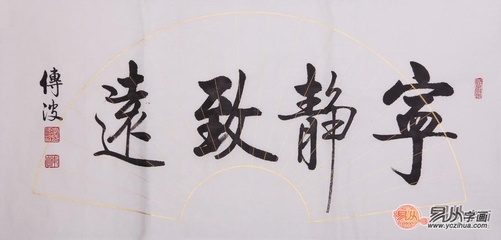 寧静致遠
傳波
易从字画
www.yozihua.com